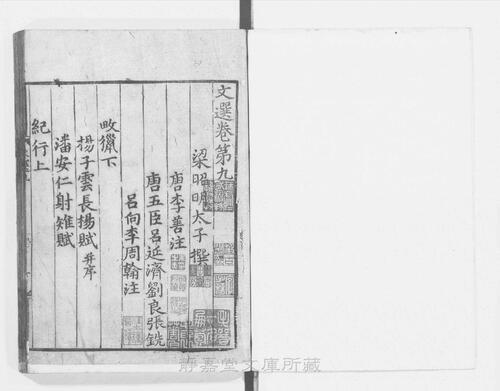 文選卷第九
梁昭明太子撰
唐李善注
唐五臣呂延濟劉良張銑
呂向李周翰注
畋獵下
揚子雲長楊賦并序
潘安仁射雉賦
紀行上
靜嘉堂文庫所藏